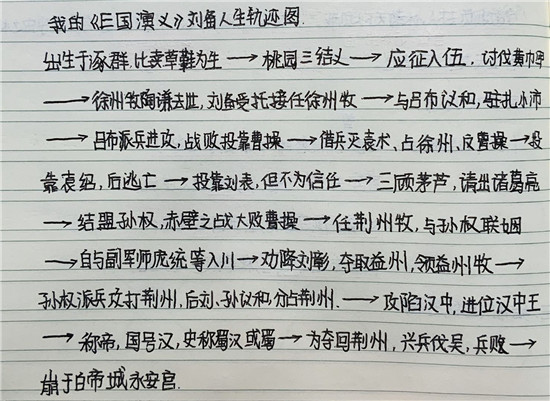 我的《三国演义》刘备人生轨迹图.
出生于涿群.比卖草鞋为生→桃园三结义→应征入伍,讨伐黄巾军
→徐州牧陶谦去世,刘备受托接任徐州牧→与吕布议和,驻扎小沛
→吕布派兵进攻,战败投靠曹操→借兵灭袁术、占徐州、反曹操→投
靠袁绍,后逃亡→投靠刘表,但不为信任→三顾茅芦,请出诸葛亮
→结盟孙权,赤壁之战大败曹操→任荆州牧,与孙权联姻
→自与副军师庞统等入川→劝降刘彰,夺取益州,领益州牧→
孙权派兵攻打荆州,后刘、孙议和分占荆州.→攻陷汉中,进位汉中王
→称帝,国号汉,史称蜀汉或蜀→为夺回荆州,兴兵伐吴,兵败→
崩于白帝城永安宫.